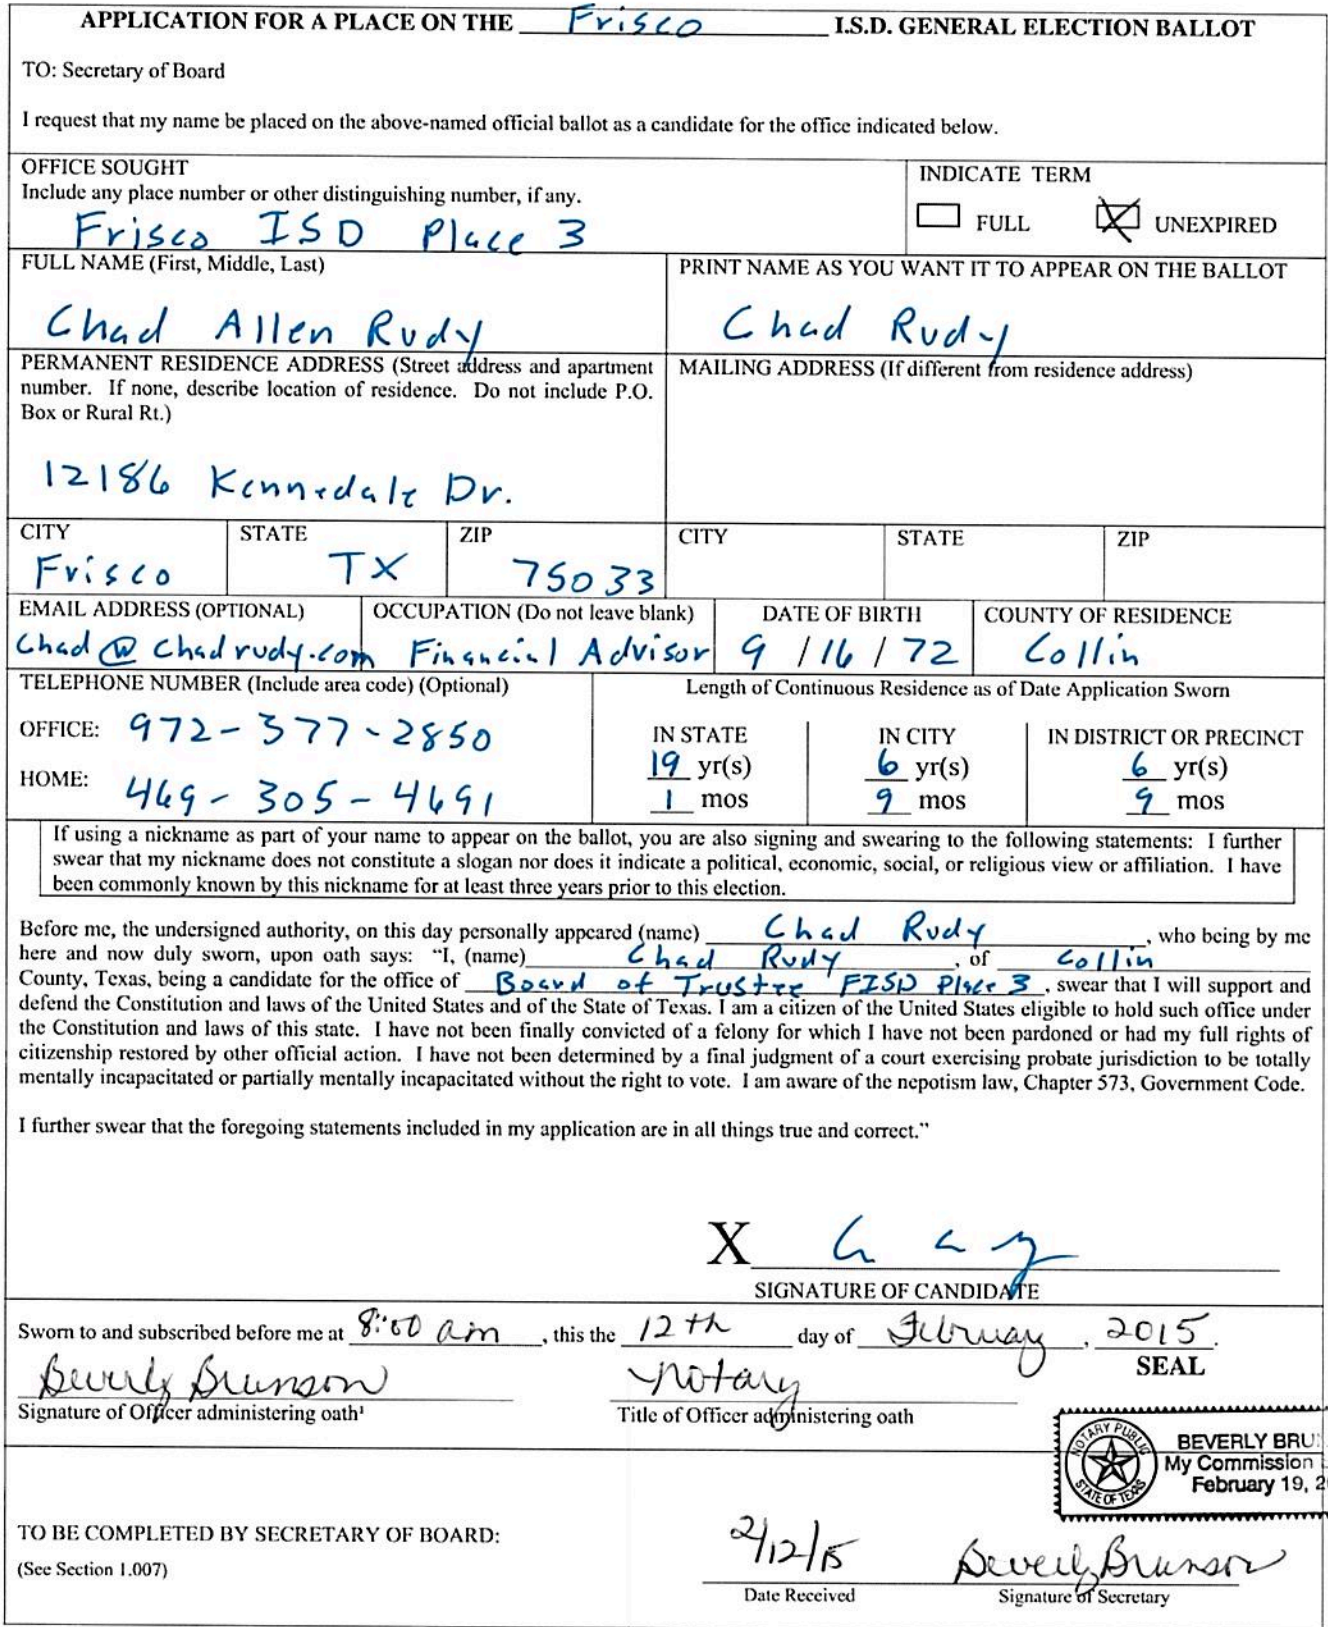 APPLICATION FOR A PLACE ON THE Frisco I.S.D. GENERAL ELECTION BALLOT
TO: Secretary of Board
I request that my name be placed on the above-named official ballot as a candidate for the office indicated below.
OFFICE SOUGHT
Include any place number or other distinguishing number, if any.
Frisco ISD Place 3
INDICATE TERM
FULL X UNEXPIRED
FULL NAME (First, Middle, Last)
Chad Allen Rudy
PRINT NAME AS YOU WANT IT TO APPEAR ON THE BALLOT
Chad Rudy
PERMANENT RESIDENCE ADDRESS (Street address and apartment
number. If none, describe location of residence. Do not include P.O.
Box or Rural Rt.)
12186 Kennedale Dr.
MAILING ADDRESS (If different from residence address)
CITY STATE ZIP CITY STATE ZIP
Frisco TX 75033
EMAIL ADDRESS (OPTIONAL) OCCUPATION (Do not leave blank) DATE OF BIRTH COUNTY OF RESIDENCE
Chad@Chadrudy.com Financial Advisor 9 / 16 / 72 Collin
TELEPHONE NUMBER (Include area code) (Optional)
OFFICE: 972-377-2850
HOME: 469-305-4691
Length of Continuous Residence as of Date Application Sworn
IN STATE IN CITY IN DISTRICT OR PRECINCT
19 yr(s) 6 yr(s) 6 yr(s)
1 mos 9 mos 9 mos
If using a nickname as part of your name to appear on the ballot, you are also signing and swearing to the following statements: I further
swear that my nickname does not constitute a slogan nor does it indicate a political, economic, social, or religious view or affiliation. I have
been commonly known by this nickname for at least three years prior to this election.
Before me, the undersigned authority, on this day personally appeared (name) Chad Rudy, who being by me
here and now duly sworn, upon oath says: “I, (name) Chad Rudy, of Collin
County, Texas, being a candidate for the office of Board of Trustee FISD Place 3, swear that I will support and
defend the Constitution and laws of the United States and of the State of Texas. I am a citizen of the United States eligible to hold such office under
the Constitution and laws of this state. I have not been finally convicted of a felony for which I have not been pardoned or had my full rights of
citizenship restored by other official action. I have not been determined by a final judgment of a court exercising probate jurisdiction to be totally
mentally incapacitated or partially mentally incapacitated without the right to vote. I am aware of the nepotism law, Chapter 573, Government Code.
I further swear that the foregoing statements included in my application are in all things true and correct.”
X
SIGNATURE OF CANDIDATE
Sworn to and subscribed before me at 8:00 am, this the 12th day of February, 2015.
SEAL
Beverly Brunson notary
Signature of Officer administering oath¹ Title of Officer administering oath
NOTARY PUBLIC
STATE OF TEXAS
BEVERLY BRU
My Commission
February 19, 2
TO BE COMPLETED BY SECRETARY OF BOARD:
(See Section 1.007)
2/12/15 Beverly Brunson
Date Received Signature of Secretary